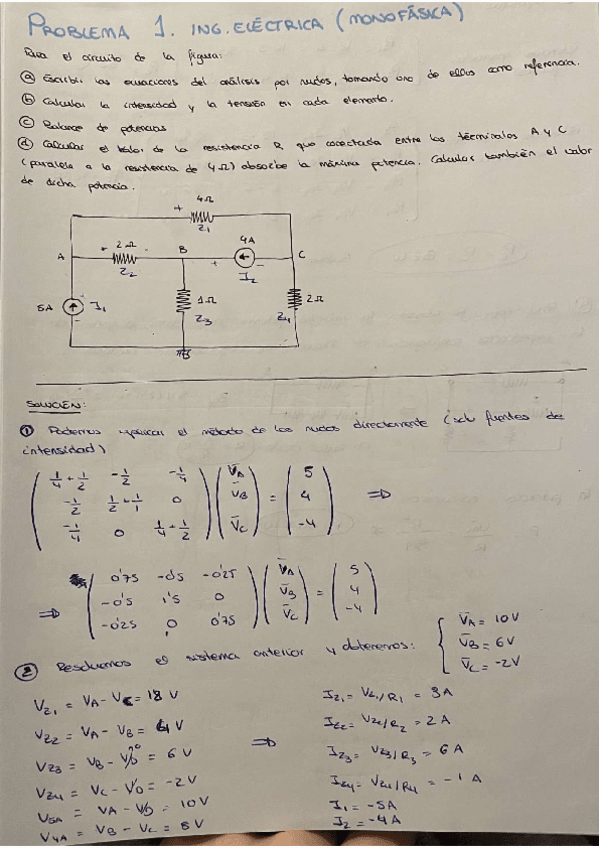 PROBLEMA 1. ING. ELÉCTRICA (MONOFÁSICA)
Para el circuito de la figura:
ⓐ Escribir las ecuaciones del análisis por nudos, tomando uno de ellos como referencia.
ⓑ Calcular la intensidad y la tensión en cada elemento.
ⓒ Balance de potencias
ⓓ Calcular el valor de la resistencia R que conectada entre los términales A y C
(paralelo a la resistencia de 4Ω) absorbe la máxima potencia. Calcular también el valor
de dicha potencia.
4Ω
+
Z1
A
+ 2Ω
Z2
B
4A
+ -
I2
C
5A
I1
-
1Ω
Z3
2Ω
Z4
SOLUCIÓN:
① Podemos aplicar el método de los nudos directamente (solo fuentes de
intensidad)
1/4 + 1/2 -1/2 -1/4 V̄A 5
-1/2 1/2 + 1/1 0 V̄B = 4 ⇒
-1/4 0 1/4 + 1/2 V̄C -4
0'75 -0'5 -0'25 V̄A 5
⇒ -0'5 1'5 0 V̄B = 4
-0'25 0 0'75 V̄C -4
② Resolvemos el sistema anterior y obtenemos:
V̄A = 10V
V̄B = 6V
V̄C = -2V
VZ1 = VA - VC = 18 V
VZ2 = VA - VB = 4V
VZ3 = VB - V0 = 6 V
VZ4 = VC - V0 = -2V
V5A = VA - V0 = 10V
V4A = VB - VC = 8V
⇒
IZ1 = VZ1/R1 = 3A
IZ2 = VZ2/R2 = 2A
IZ3 = VZ3/R3 = 6A
IZ4 = VZ4/R4 = -1 A
I1 = -5A
I2 = -4A